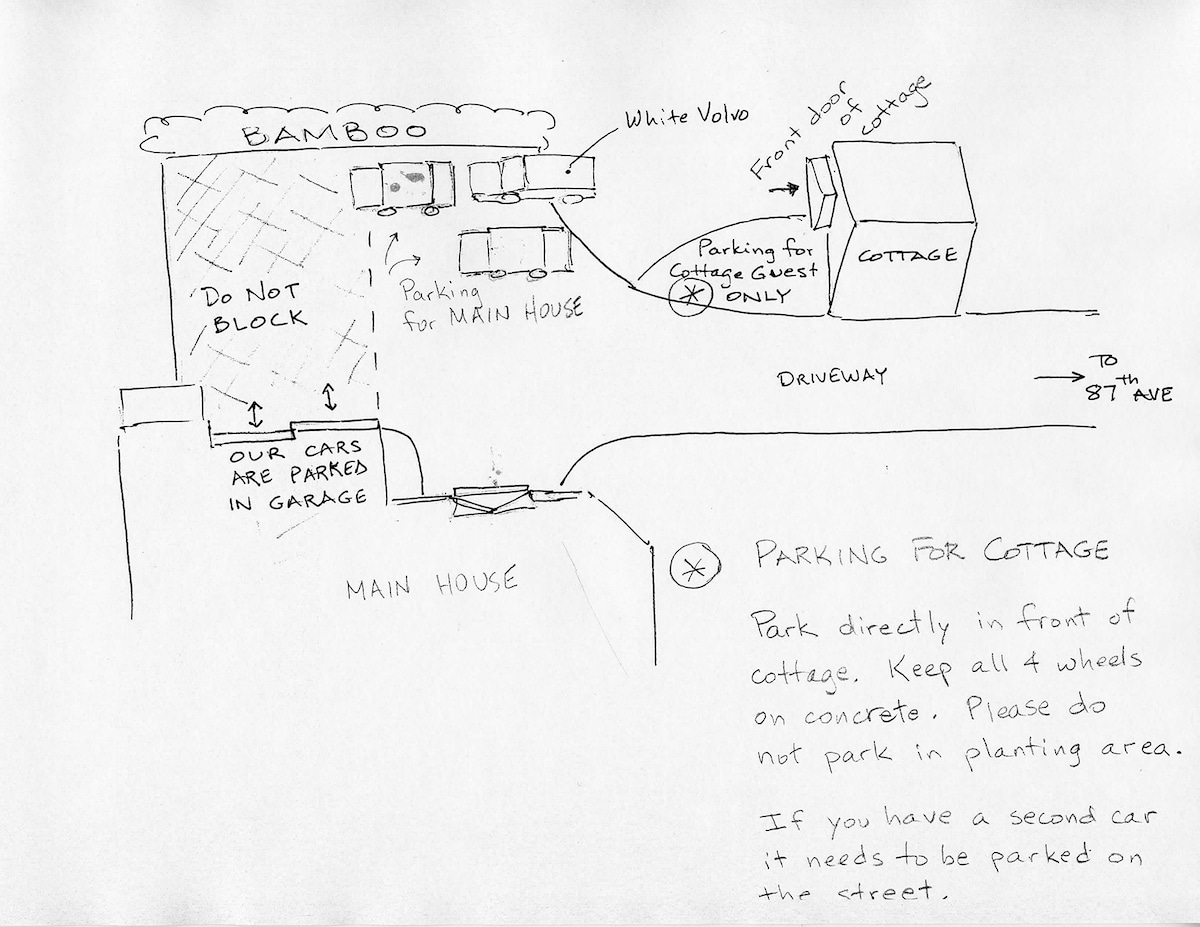 BAMBOO
White Volvo
Front door
of
cottage
Parking for
Cottage Guest
* ONLY
COTTAGE
DO NOT
BLOCK
Parking
for MAIN HOUSE
DRIVEWAY
TO
87th AVE
OUR CARS
ARE PARKED
IN GARAGE
MAIN HOUSE
* PARKING FOR COTTAGE
Park directly in front of
cottage. Keep all 4 wheels
on concrete. Please do
not park in planting area.
If you have a second car
it needs to be parked on
the street.